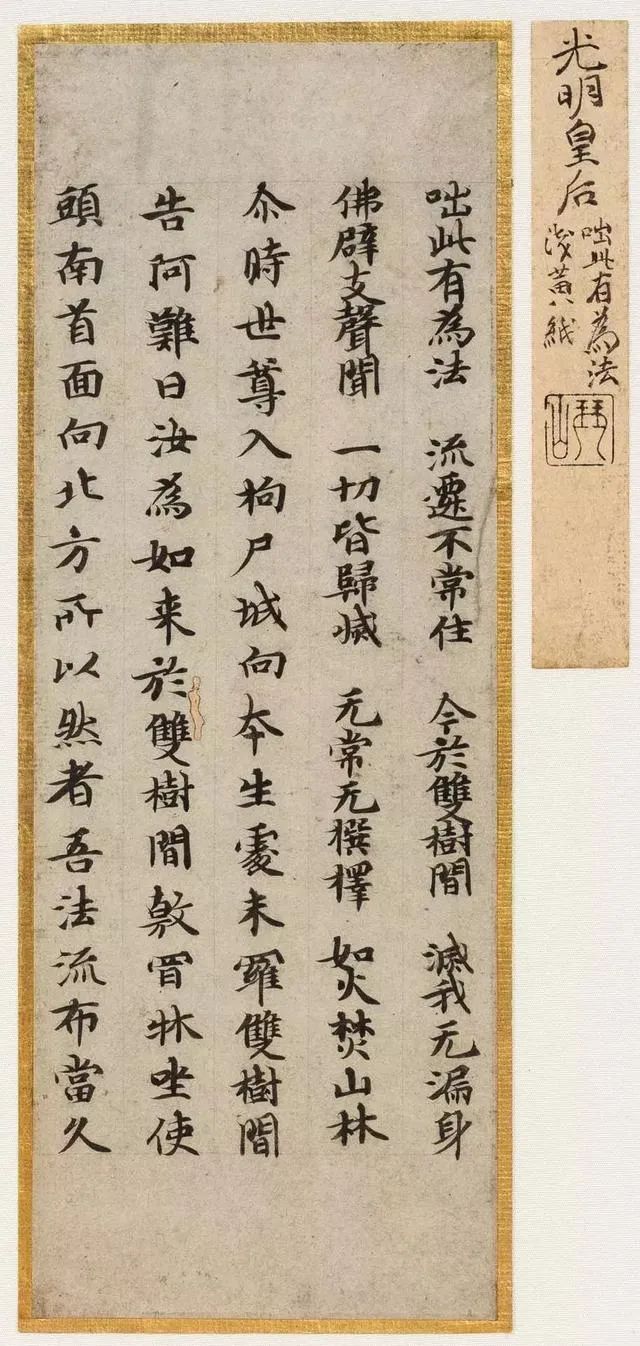 光明皇后
咄此有為法
浅黄紙
琴山
咄此有為法 流遷不常住 今於雙樹間 滅我无漏身
佛辟支聲聞 一切皆歸滅 无常无撰擇 如火焚山林
尒時世尊入拘尸城向夲生處末羅雙樹間
告阿難曰汝為如来於雙樹間敷置牀坐使
頭南首面向北方所以然者吾法流布當久